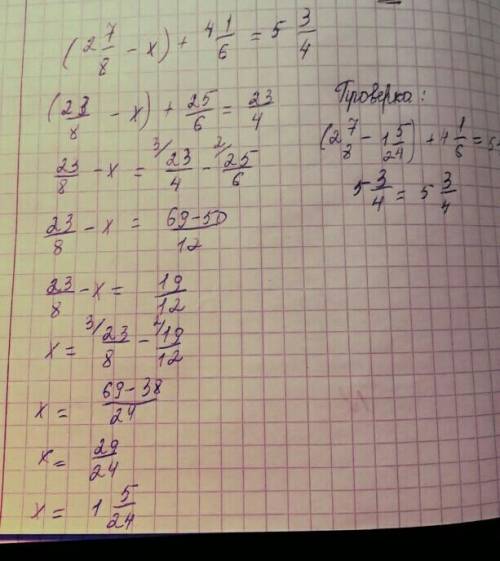 (2 7/8 - x) + 4 1/6 = 5 3/4
(23/8 - x) + 25/6 = 23/4
23/8 - x = 3/ 23/4 - 2/ 25/6
23/8 - x = 69-50/12
23/8 - x = 19/12
x = 3/ 23/8 - 2/ 19/12
x = 69-38/24
x = 29/24
x = 1 5/24
Проверка:
(2 7/8 - 1 5/24) + 4 1/6 = 5
5 3/4 = 5 3/4